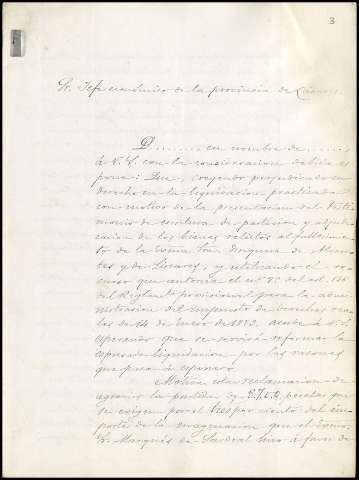 3
Sr. Jefe económico de la provincia de Cáceres
D......... en nombre de .........
á V. S. con la consideracion debida es
pone: Que, creyendo perjudicado su
derecho en la liquidacion practicada
con motivo de la presentacion del testi
monio de escritura de particion y adjudi
cacion de los bienes relictos al fallecimien
to de la Exma Sra. Duquesa de Abran
tes y de Linares, y utilizando el re
curso que autoriza el del art.
del Reglamto provisional para la admi
nistracion del impuesto de derechos rea
les de 14 de Enero de 1873, acude á V. S.
esperando que se servirá reformar la
espresada liquidacion por las razones
que pasa á esponer.
Motiva esta reclamacion de
agravio la partida de pesetas que
se exigen por el tres por ciento del im
porte de la que el Exmo.
Sr. Marqués de Sardoal hizo á favor de